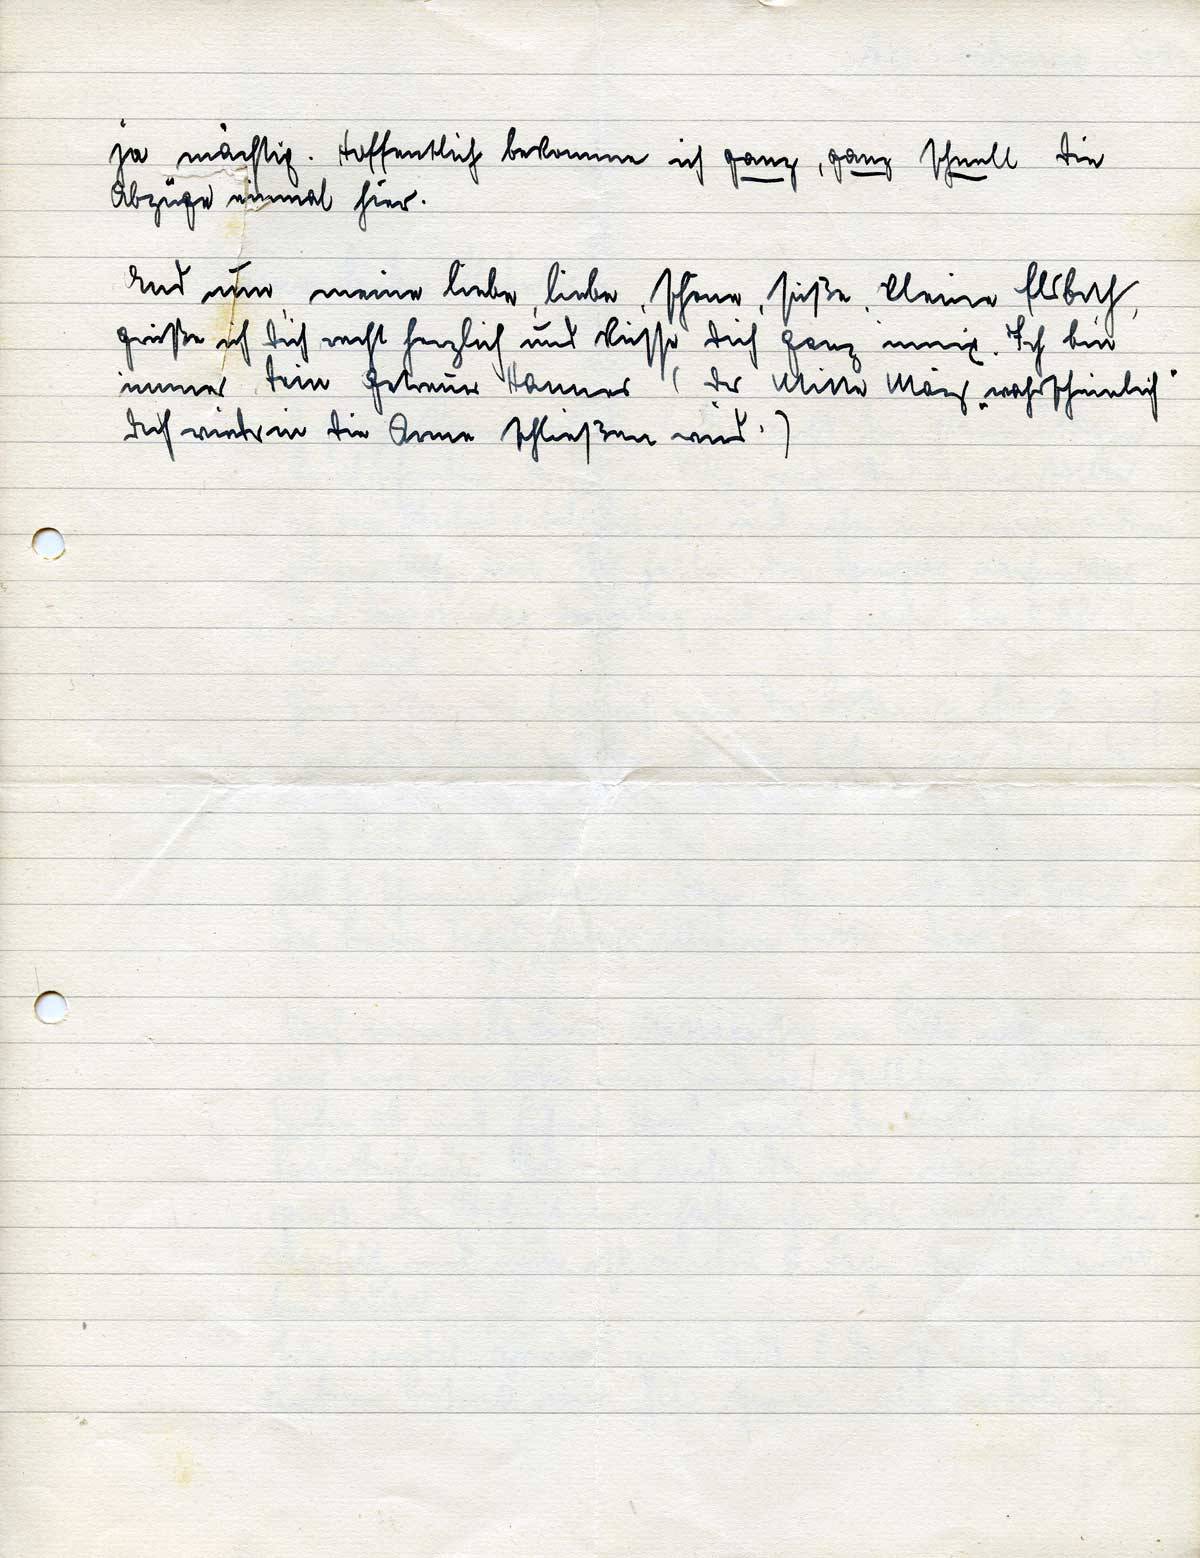 ja mächtig. Hoffentlich bekomme ich ganz, ganz schnell die
Abzüge einmal hier.
Und nun, meine liebe, liebe, schöne, süße, kleine Elsbeth,
grüße ich Dich recht herzlich und küsse Dich ganz innig. Ich bin
immer Dein getreuer Hannes (der Mitte März „wahrscheinlich"
Dich wieder in die Arme schließen wird.)